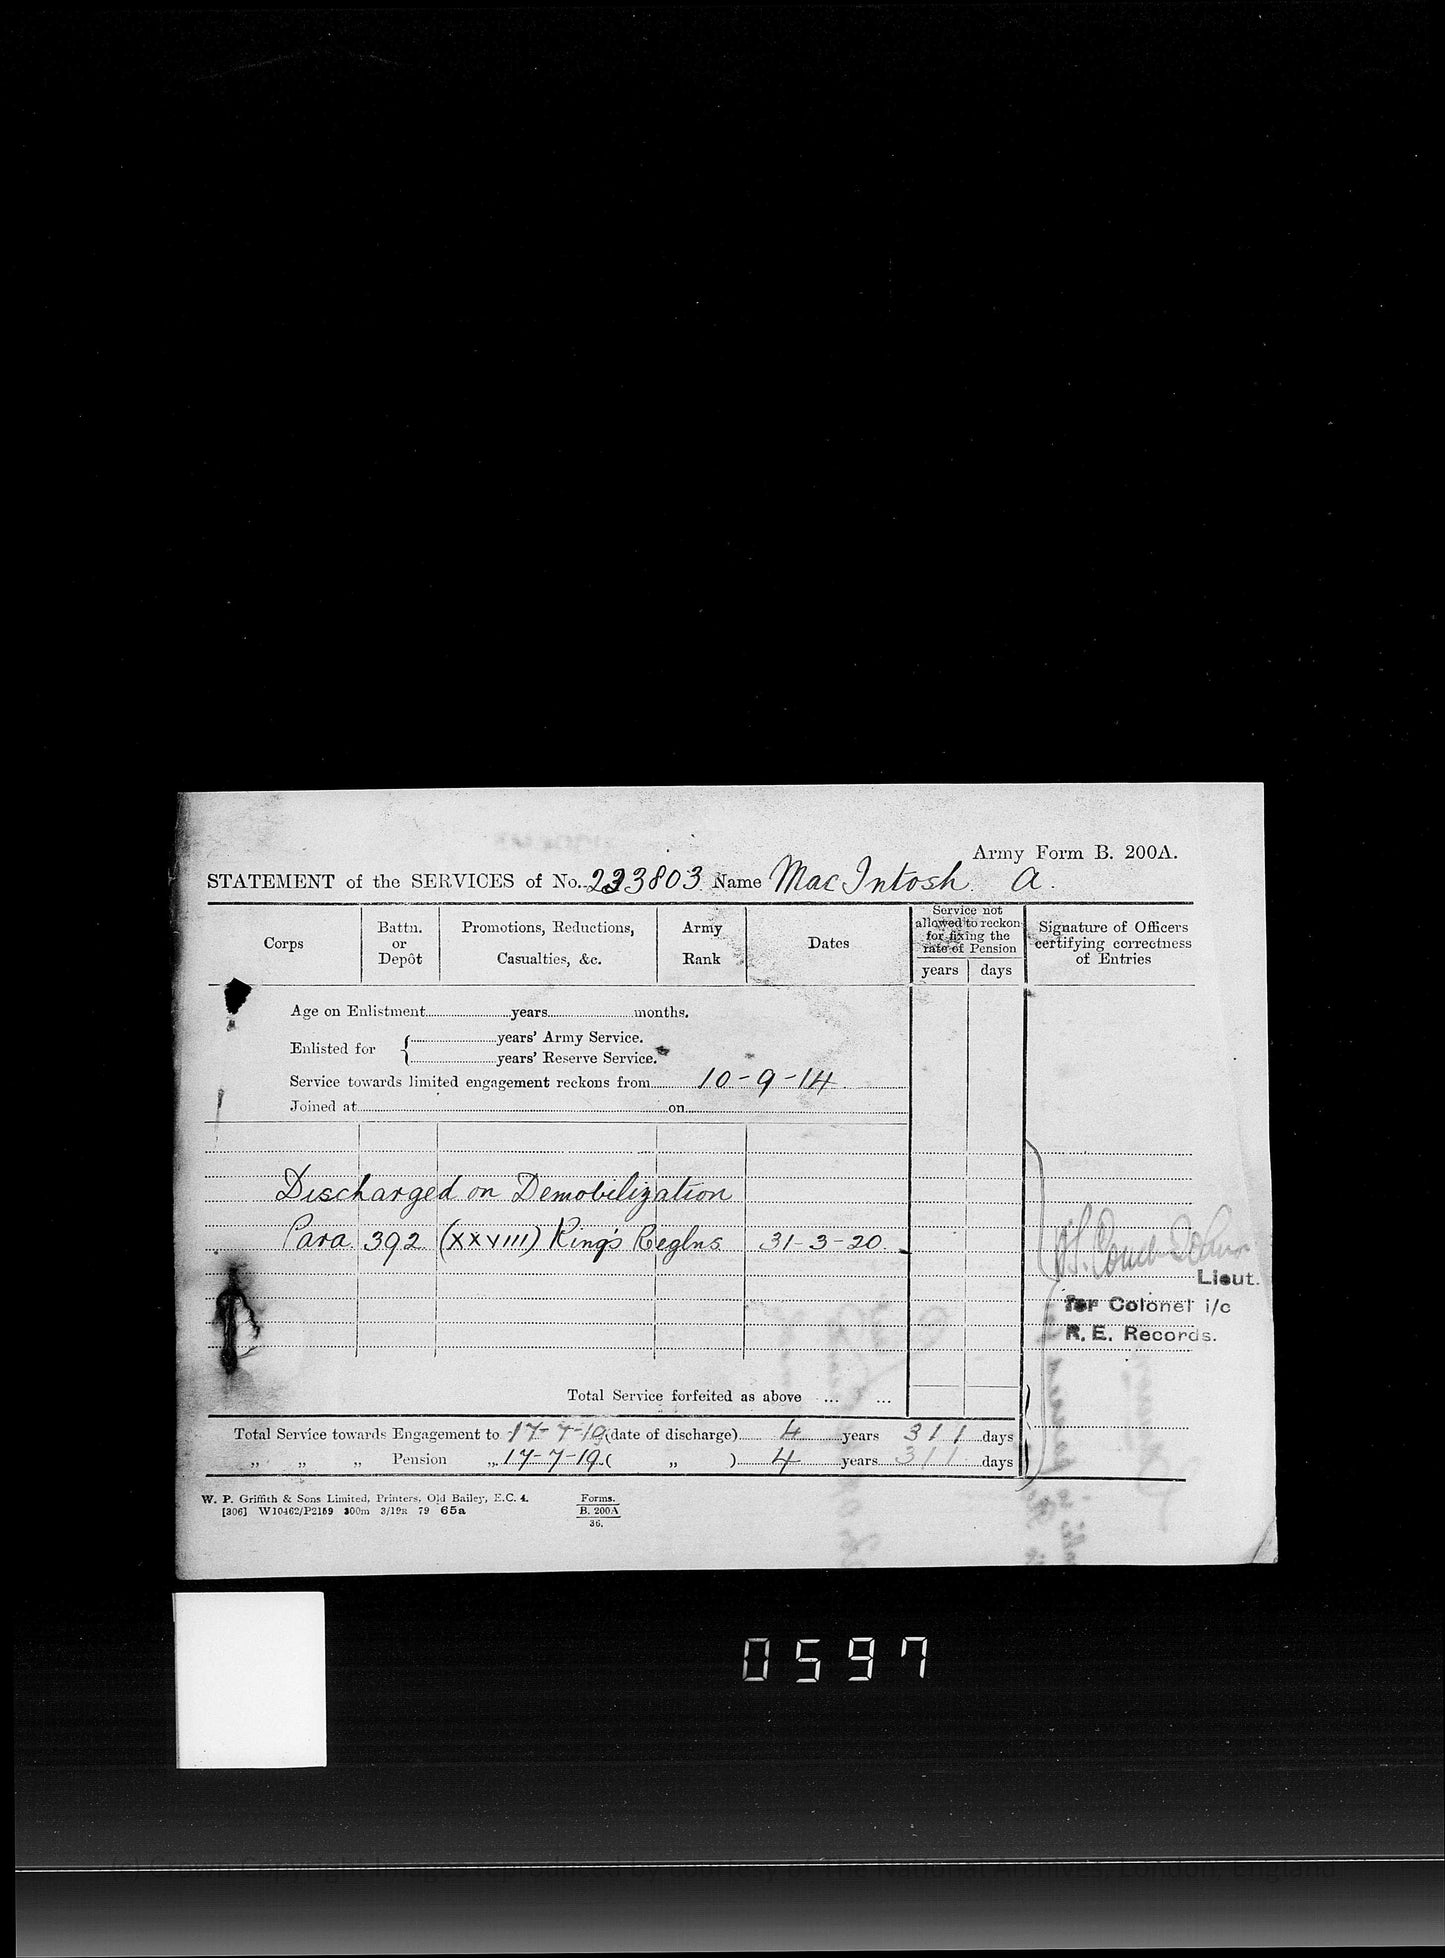 Army Form B. 200A.
STATEMENT of the SERVICES of No. 233803 Name MacIntosh A.
Corps
Battn. or Depôt
Promotions, Reductions, Casualties, &c.
Army Rank
Dates
Service not allowed to reckon for fixing the rate of Pension
years days
Signature of Officers certifying correctness of Entries
Age on Enlistment years months.
Enlisted for { years' Army Service.
years' Reserve Service.
Service towards limited engagement reckons from 10-9-14
Joined at on
Discharged on Demobilization
Para 392 (XXVIII) King's Reglns 31-3-20
Lieut.
for Colonel i/c
R. E. Records.
Total Service forfeited as above ... ...
Total Service towards Engagement to 17-7-19 (date of discharge) 4 years 311 days
„ „ „ Pension „ 17-7-19 ( „ ) 4 years 311 days
W. P. Griffith & Sons Limited, Printers, Old Bailey, E.C. 4.
[306] W10462/P2159 300m 3/19R 79 65a
Forms.
B. 200A
36.
0597
(c) Crown Copyright Images reproduced by courtesy of The National Archives, London, England